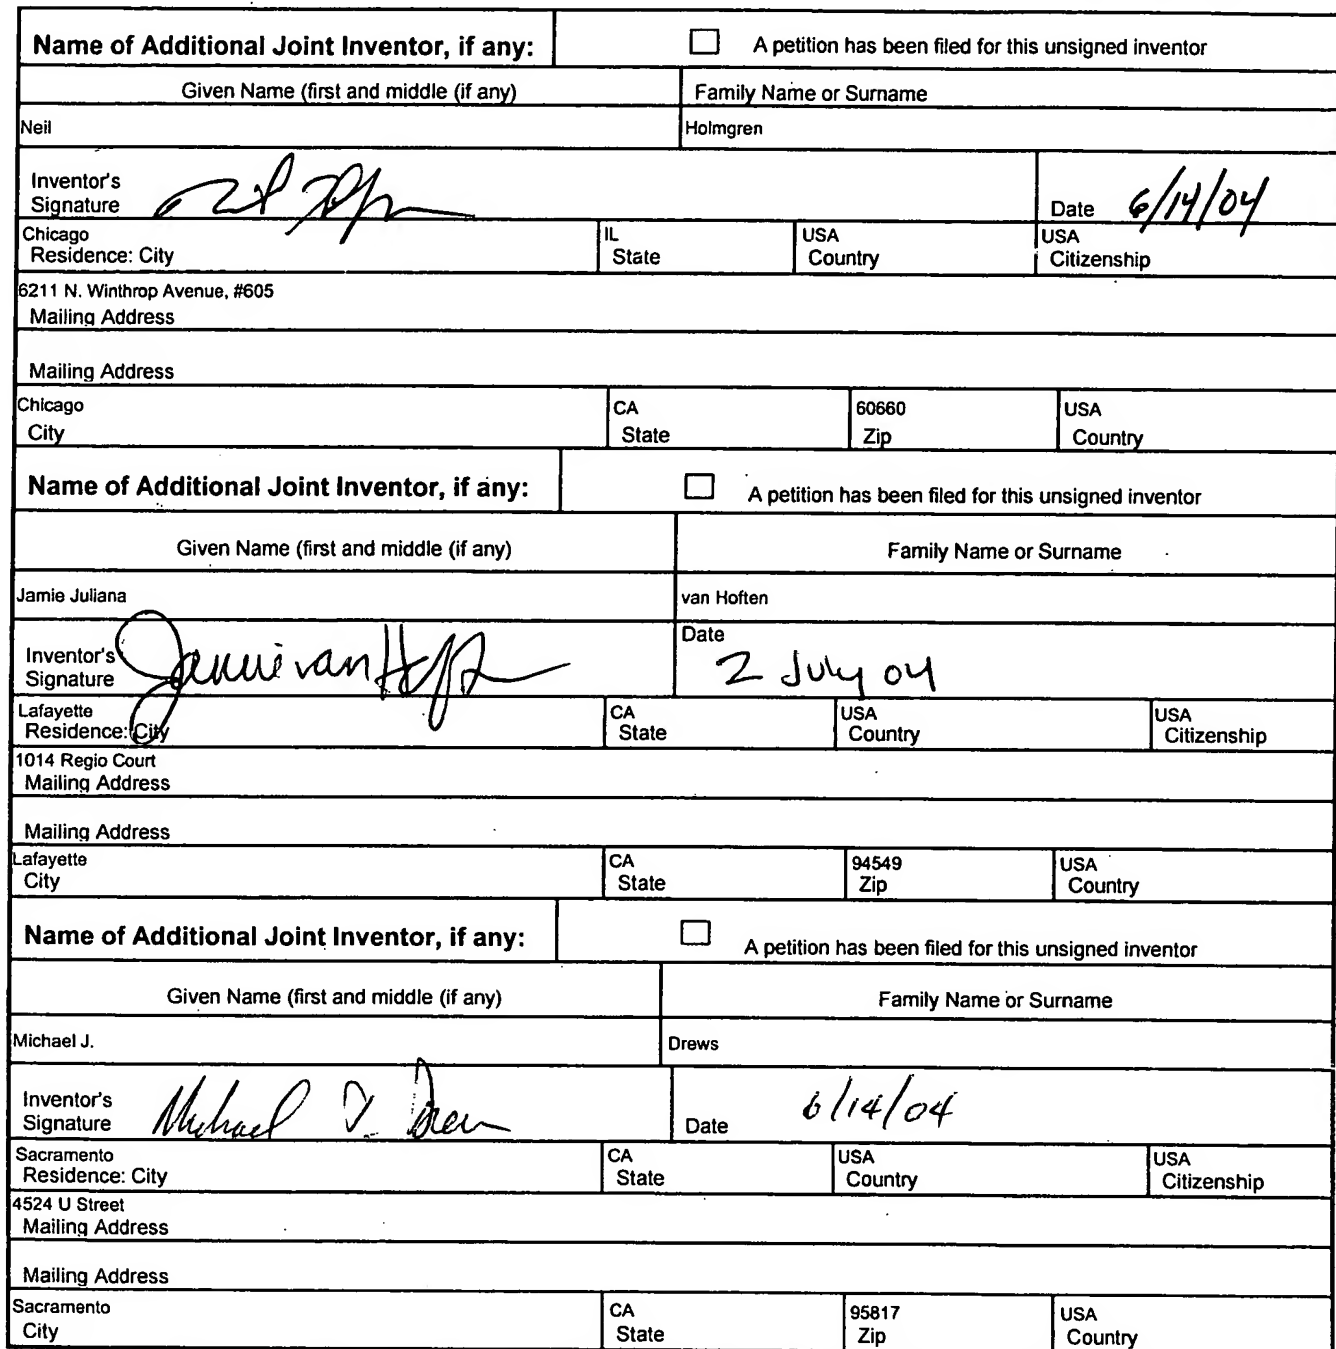 Name of Additional Joint Inventor, if any: A petition has been filed for this unsigned inventor
Given Name (first and middle (if any) Family Name or Surname
Neil Holmgren
Inventor's
Signature Date 6/14/04
Chicago IL USA USA
Residence: City State Country Citizenship
6211 N. Winthrop Avenue, #605
Mailing Address
Mailing Address
Chicago CA 60660 USA
City State Zip Country
Name of Additional Joint Inventor, if any: A petition has been filed for this unsigned inventor
Given Name (first and middle (if any) Family Name or Surname
Jamie Juliana van Hoften
Inventor's Jamie van Hoften Date
Signature 2 July 04
Lafayette CA USA USA
Residence: City State Country Citizenship
1014 Regio Court
Mailing Address
Mailing Address
Lafayette CA 94549 USA
City State Zip Country
Name of Additional Joint Inventor, if any: A petition has been filed for this unsigned inventor
Given Name (first and middle (if any) Family Name or Surname
Michael J. Drews
Inventor's
Signature Michael J. Drews Date 6/14/04
Sacramento CA USA USA
Residence: City State Country Citizenship
4524 U Street
Mailing Address
Mailing Address
Sacramento CA 95817 USA
City State Zip Country